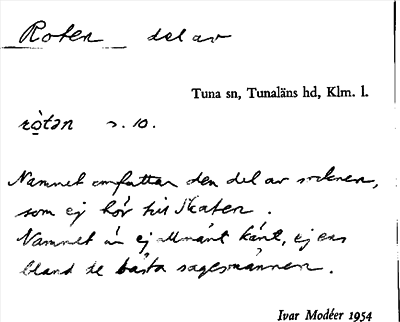 Roten del av
Tuna sn, Tunaläns hd, Klm. l.
rò̱tən s. 10.
Namnet omfattar den del av socknen,
som ej hör till Skaten.
Namnet är ej allmänt känt, ej ens
bland de bästa sagesmännen.
Ivar Modéer 1954